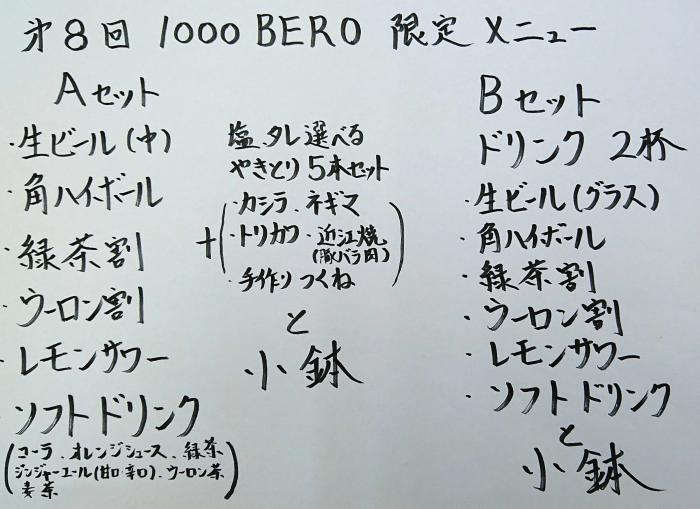 第8回 1000 BERO 限定 メニュー
Aセット
・生ビール(中)
・角ハイボール
・緑茶割
・ウーロン割
・レモンサワー
ソフトドリンク
(コーラ、オレンジジュース、緑茶
ジンジャーエール(甘口・辛口)、ウーロン茶
麦茶)
塩、タレ選べる
やきとり5本セット
+(・カシラ、ネギマ
・トリカワ・近江焼
(豚バラ肉)
・手作りつくね)
と
小鉢
Bセット
ドリンク 2杯
・生ビール(グラス)
・角ハイボール
・緑茶割
・ウーロン割
・レモンサワー
・ソフトドリンク
と
小鉢